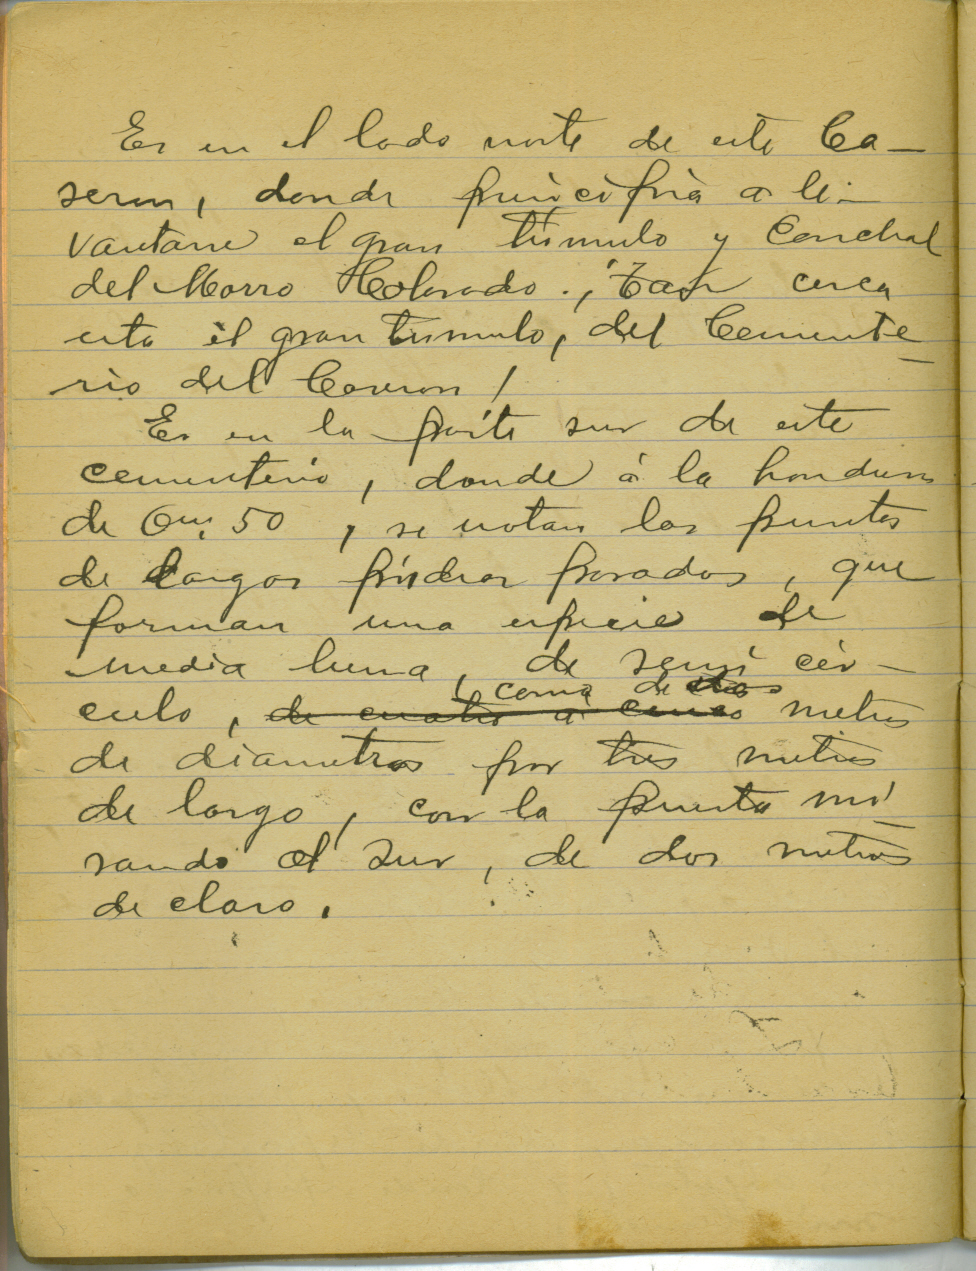 Es en el lado norte de este Ca-
seron, donde principia a le-
vantarse el gran túmulo y Conchal
del Morro Colorado. ¡Tan cerca
esta el gran tumulo, del Cemente
rio del Caseron!
Es en la parte sur de este
cementerio, donde á la hondura
de 0m.50, se notan las puntas
de largas piedras paradas, que
forman una especie de
media luna, de semi cir-
como de dos
culo, de cuatro a cinco metros
de diametros por tres metros
de largo, con la puerta mi
rando al Sur, de dos metros
de claro.